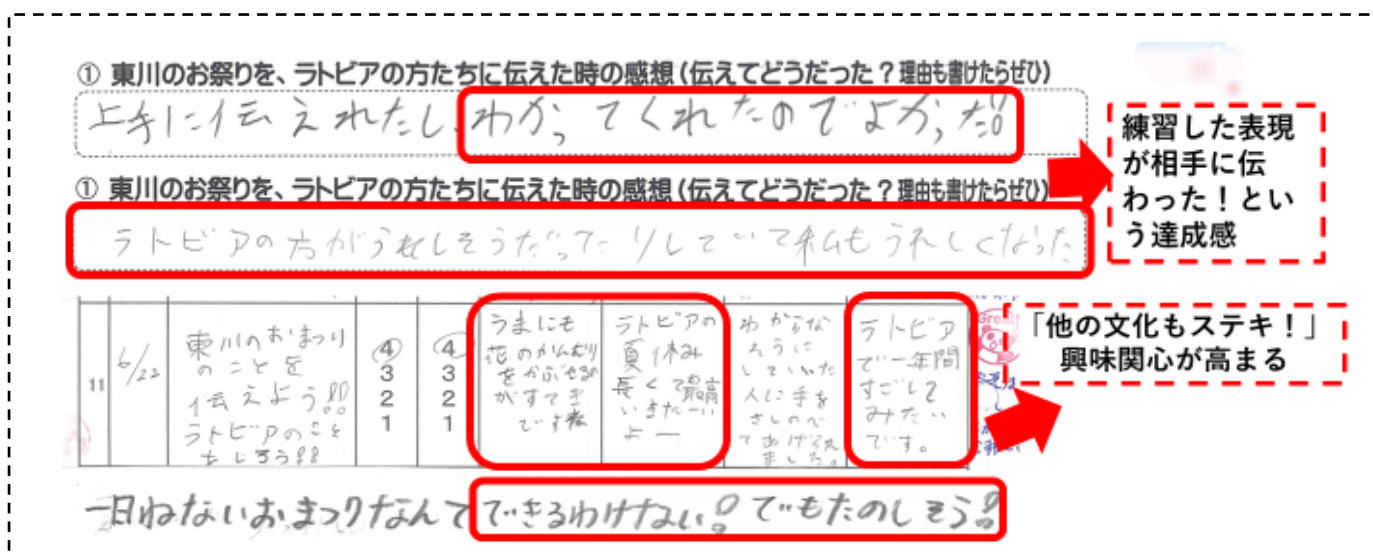 ① 東川のお祭りを、ラトビアの方たちに伝えた時の感想(伝えてどうだった？理由も書けたらぜひ)
上手に伝えれたし、わかってくれたのでよかった!!
練習した表現
が相手に伝
わった！とい
う達成感
① 東川のお祭りを、ラトビアの方たちに伝えた時の感想(伝えてどうだった？理由も書けたらぜひ)
ラトビアの方がうれしそうだったりしていて私もうれしくなった
11
6/22
東川のおまつり
のことを
伝えよう!!
ラトビアのこと
もしろう!!
4
3
2
1
4
3
2
1
うまにも
花のかんむり
をかぶせるの
がすてき
です
ラトビアの
夏休み
長くて最高
いきたーい
よー
わからな
そうに
していた
人に手を
さしのべ
てあげられ
ました。
ラトビア
で一年間
すごして
みたい
です。
「他の文化もステキ！」
興味関心が高まる
一日ねないおまつりなんてできるわけない!でもたのしそう!